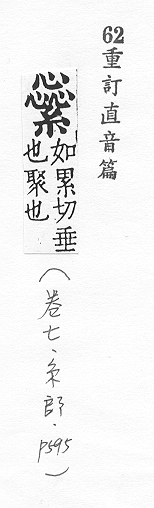 62重訂直音篇
繠如累切垂
也聚也
(卷七·糸部·P595)